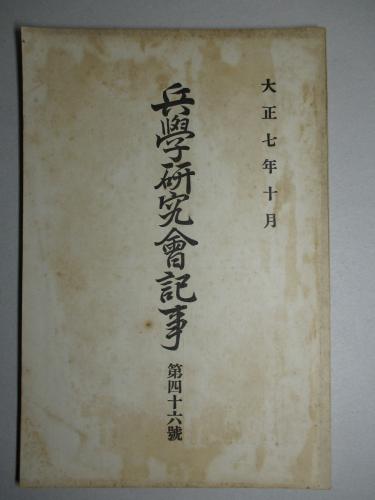 大正七年十月
兵學研究會記事
第四十六號